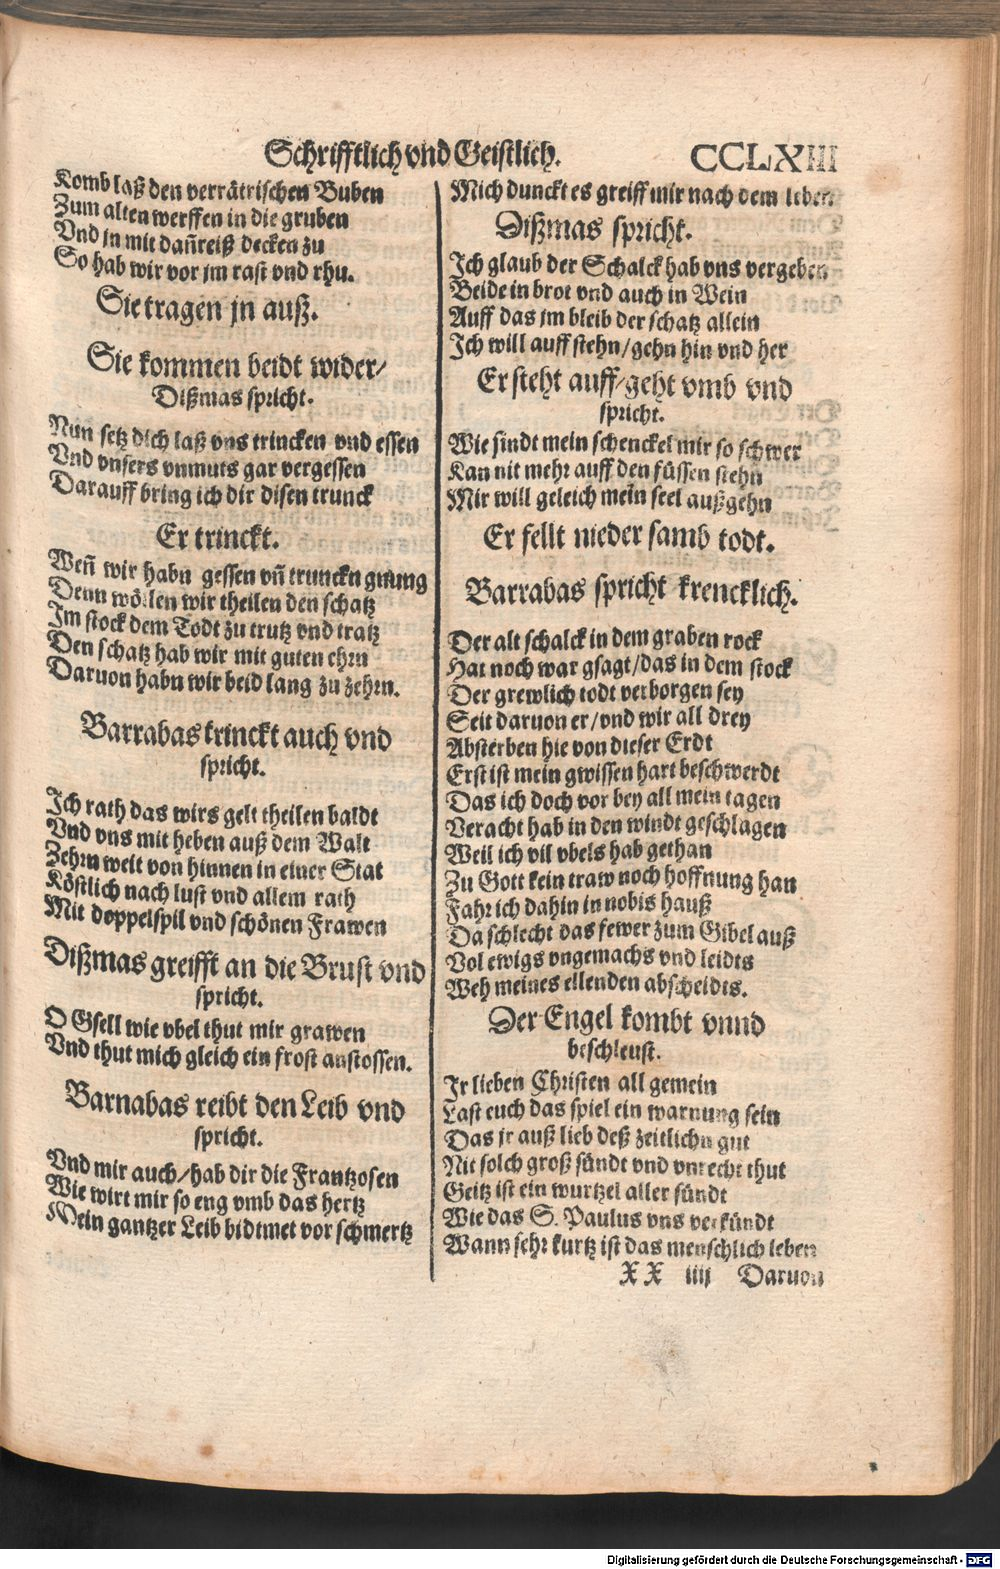 Schrifftlich vnd Geistlich. CCLXIII
Komb laß den verrätrischen Buben
Zum alten werffen in die gruben
Vnd jn mit dañreiß decken zu
So hab wir vor jm rast vnd rhu.
Sie tragen jn auß.
Sie kommen beidt wider/
Dißmas spricht.
Nun setz dich laß vns trincken vnd essen
Vnd vnsers vnmuts gar vergessen
Darauff bring ich dir disen trunck
Er trinckt.
Weñ wir habn gessen vñ trunckn gnung
Denn wöllen wir theilen den schatz
Im stock dem Todt zu trutz vnd tratz
Den schatz hab wir mit guten ehrn
Daruon habn wir beid lang zu zehrn.
Barrabas trinckt auch vnd
spricht.
Ich rath das wirs gelt theilen baldt
Vnd vns mit heben auß dem Walt
Zehrn weit von hinnen in einer Stat
Köstlich nach lust vnd allem rath
Mit doppelspil vnd schönen Frawen
Dißmas greifft an die Brust vnd
spricht.
O Gsell wie vbel thut mir grawen
Vnd thut mich gleich ein frost anstossen.
Barnabas reibt den Leib vnd
spricht.
Vnd mir auch/hab dir die Frantzosen
Wie wirt mir so eng vmb das hertz
Mein gantzer Leib bidmet vor schmertz
Mich dunckt es greiff mir nach dem leben
Dißmas spricht.
Ich glaub der Schalck hab vns vergeben
Beide in brot vnd auch in Wein
Auff das jm bleib der schatz allein
Ich will auff stehn/gehn hin vnd her
Er steht auff/geht vmb vnd
spricht.
Wie sindt mein schenckel mir so schwer
Kan nit mehr auff den füssen stehn
Mir will geleich mein seel außgehn
Er fellt nieder samb todt.
Barrabas spricht krencklich.
Der alt schalck in dem graben rock
Hat noch war gsagt/das in dem stock
Der grewlich todt verborgen sey
Seit daruon er/vnd wir all drey
Absterben hie von dieser Erdt
Erst ist mein gwissen hart beschwerdt
Das ich doch vor bey all mein tagen
Veracht hab in den windt geschlagen
Weil ich vil vbels hab gethan
Zu Gott kein traw noch hoffnung han
Fahr ich dahin in nobis hauß
Da schlecht das fewer zum Gibel auß
Vol ewigs vngemachs vnd leidts
Weh meines ellenden abscheidts.
Der Engel kombt vnnd
beschleust.
Ir lieben Christen all gemein
Last euch das spiel ein warnung sein
Das jr auß lieb deß zeitlichn gut
Nit solch groß sündt vnd vnrecht thut
Geitz ist ein wurtzel aller sündt
Wie das S. Paulus vns verkündt
Wann sehr kurtz ist das menschlich leben
XX iiij Daruon
Digitalisierung gefördert durch die Deutsche Forschungsgemeinschaft - DFG